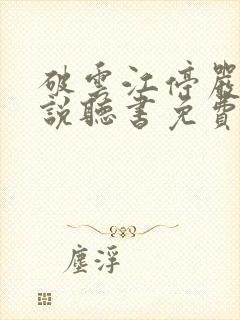 破雲江停嚴
說聽書免費
塵浮